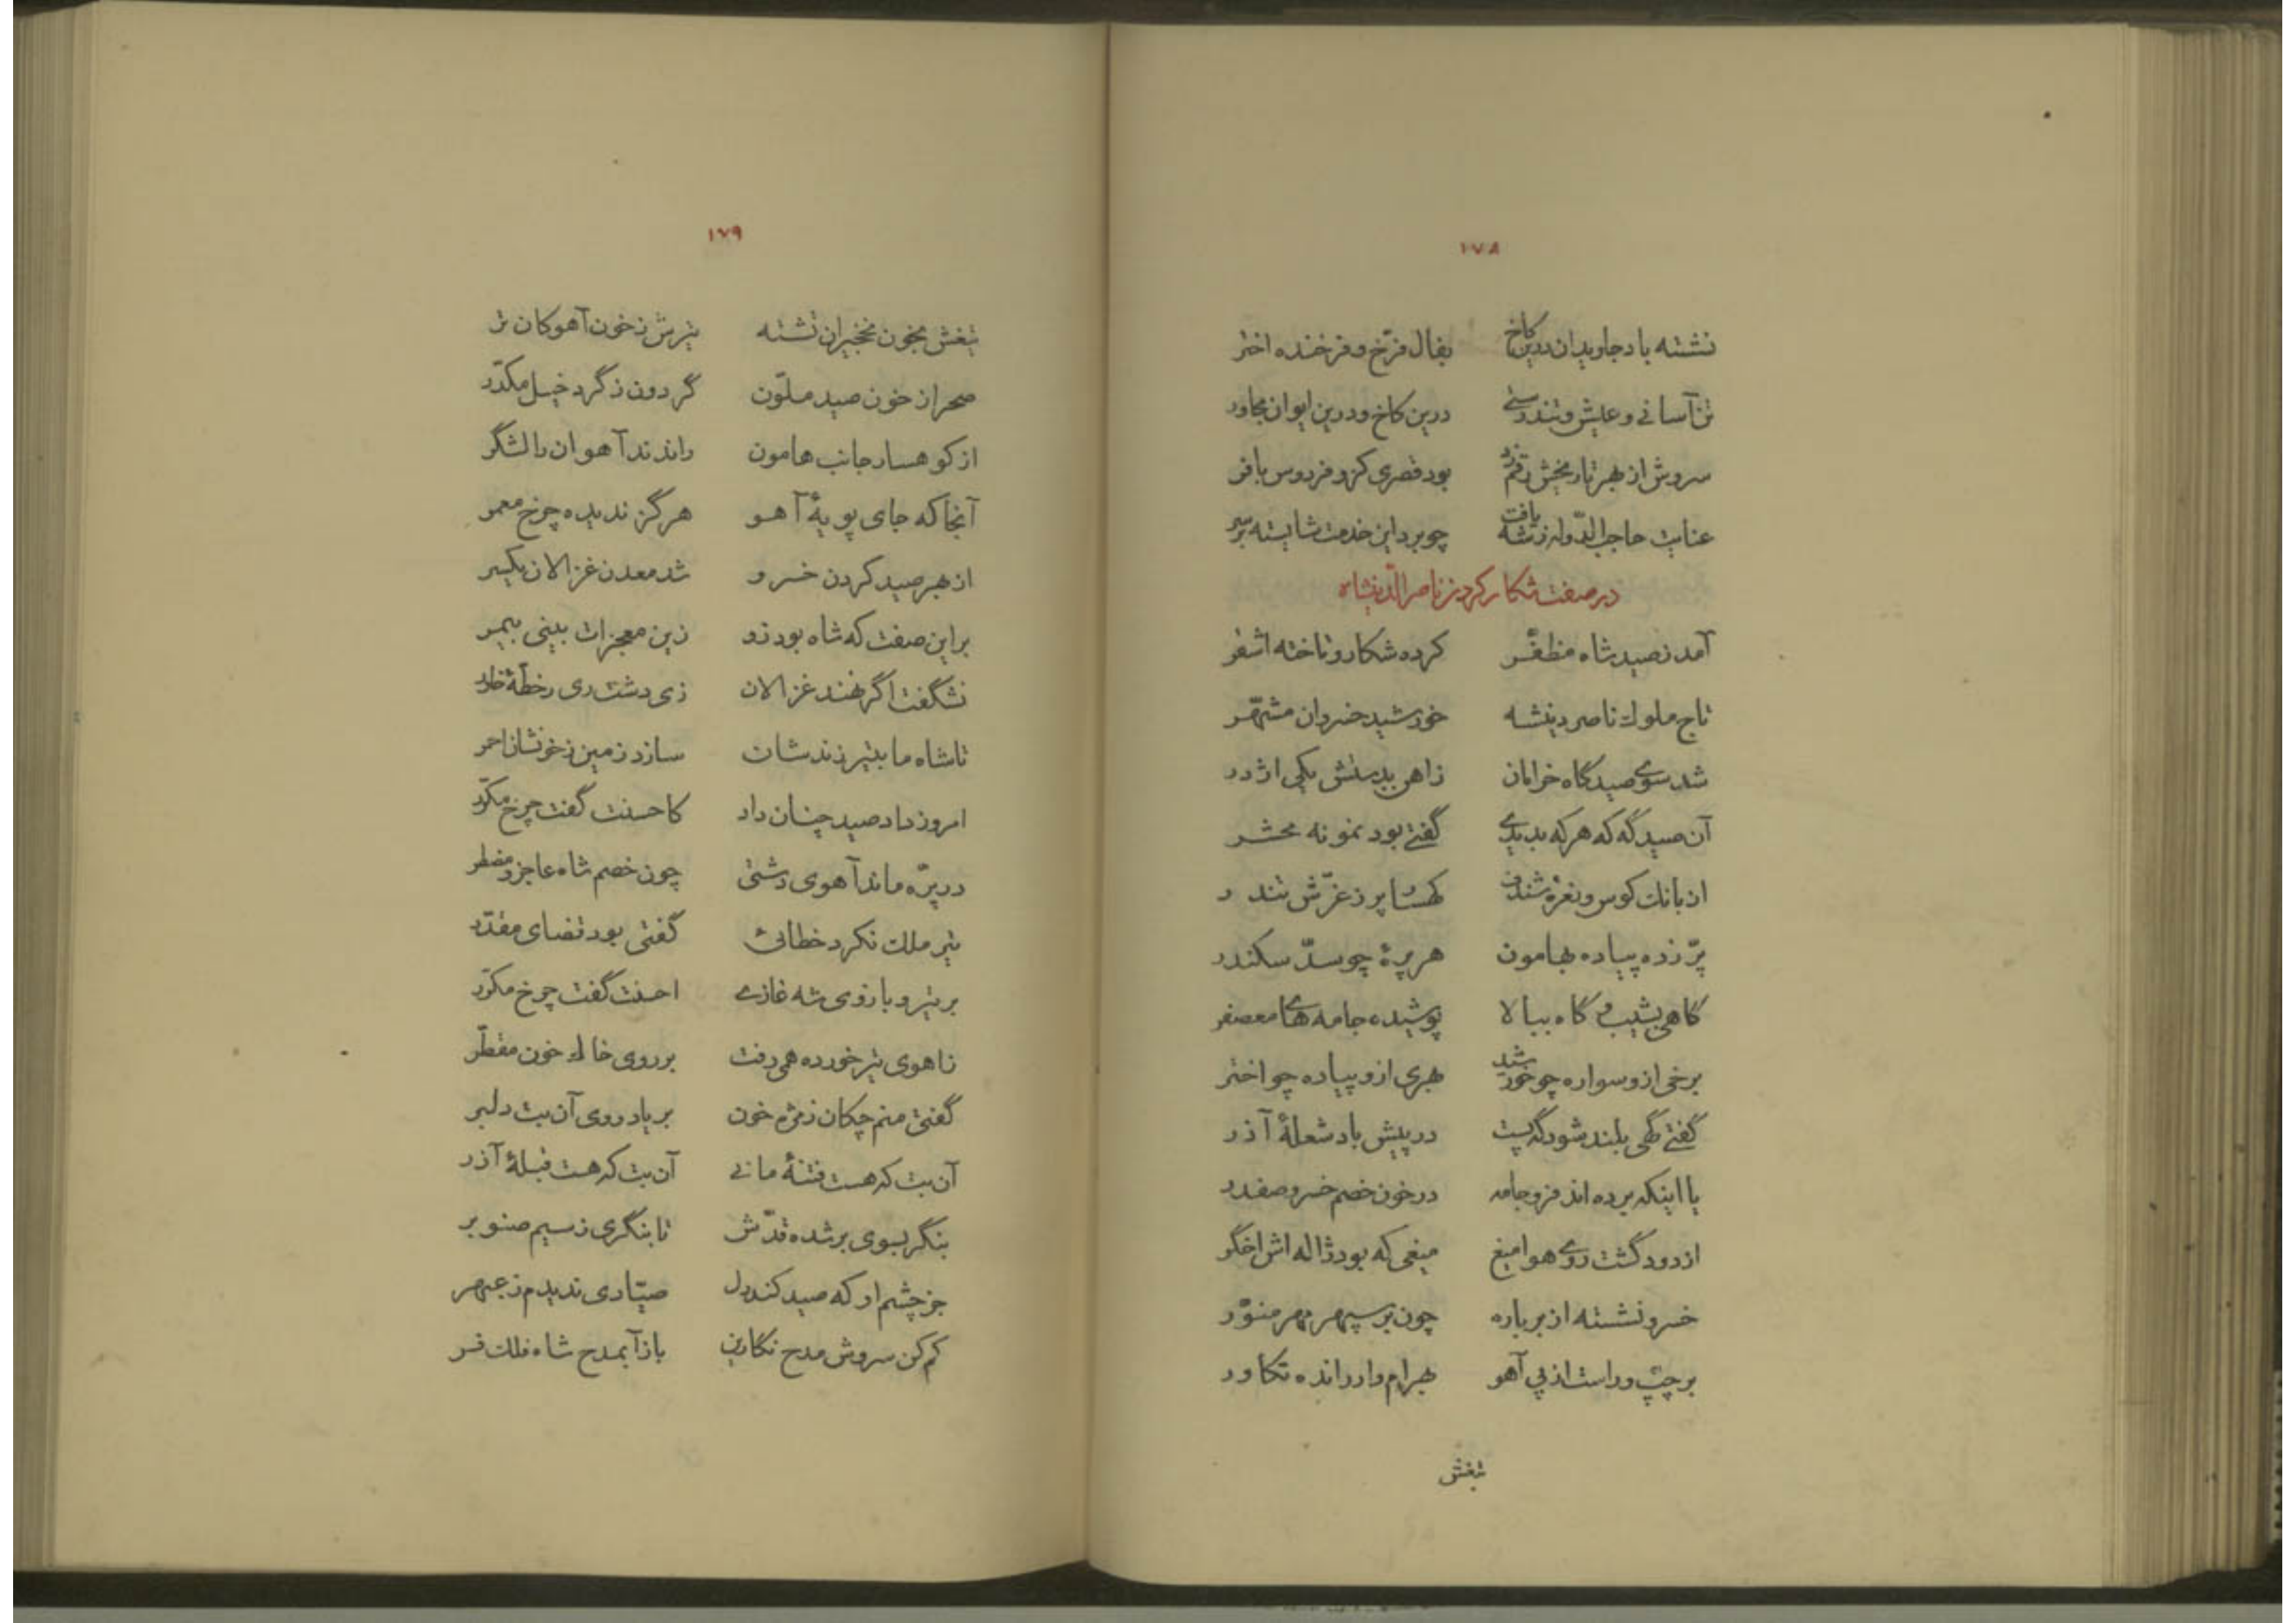 ۱۷۸
نشسته باد جاویدان درین کاخ بفال فرّخ و فرخنده اختر
تن آسانی و عیش و تندرستی درین کاخ و درین ایوان مجاور
سروش از بهر تاریخش رقم زد بود قصری کزو فردوس بافر
عنایت حاجب الدّوله ز شه یافت چو برد این خدمت شایسته بر سر
در صفت شکار کردن ناصرالدینشاه
آمد ز صید شاه مظفّر کرده شکار و تاخته اشقر
تاج ملوک ناصر دینشه خورشید خسروان مشهّر
شد سوی صیدگاه خرامان ز اهن بدستش یکی اژدر
آن صیدگه که هر که بدیدی گفتی بود نمونه محشر
از بانک کوس و نعرهٔ شندف کهسار پر ز غرّش تندر
پرّ زده پیاده بهامون هر پرهٔ چو سدّ سکندر
گاهی بشیب و گاه ببالا پوشیده جامه های معصفر
برخی ازو سواره چو خورشید بهری ازو پیاده چو اختر
گفتی گهی بلند شود گه پست در پیش باد شعلهٔ آذر
یا اینکه برده اند فرو جامه در خون خصم خسرو صفدر
از دود گشت روی هوا میغ میغی که بود ژاله اش اخگر
خسرو نشسته از بر باره چون بر سپهر مهر منوّر
بر چپّ و راست از پی آهو بهرام وار رانده تکاور
تیغش
۱۷۹
تیغش بخون نخجیران تشنه تیرش ز خون آهوکان تر
صحرا ز خون صید ملوّن گردون ز گرد خیل مکدّر
از کوهسار جانب هامون راندند آهوان را لشگر
آنجا که جای پویهٔ آهو هرگز ندیده چرخ معمر
از بهر صید کردن خسرو شد معدن غزالان یکسر
بر این صفت که شاه بود زو زین معجزات بینی بیمر
نشگفت اگر نهند غزالان زی دشت ری ز خطّهٔ خاور
تا شاه ما بتیر زندشان سازد زمین ز خونشان احمر
امروز داد صید چنان داد کاحسنت گفت چرخ مکرّر
در پرّه ماند آهوی دشتی چون خصم شاه عاجز و مضطر
تیر ملک نکرد خطائی گفتی بود قضای مقدّر
بر تیر و بازوی شه غازی احسنت گفت چرخ مکرّر
ز اهوی تیر خورده همی رفت بر روی خاک خون مقطّر
گفتی منم چکان ز مژه خون بر یاد روی آن بت دلبر
آن بت که هست فتنهٔ مانی آن بت که هست قبلهٔ آذر
بنگر بسوی بر شده قدّش تا بنگری ز سیم صنوبر
جز چشم او که صید کند دل صیّادی ندیدم ز عبهر
کم کن سروش مدح نگارین باز آ بمدح شاه فلک فر